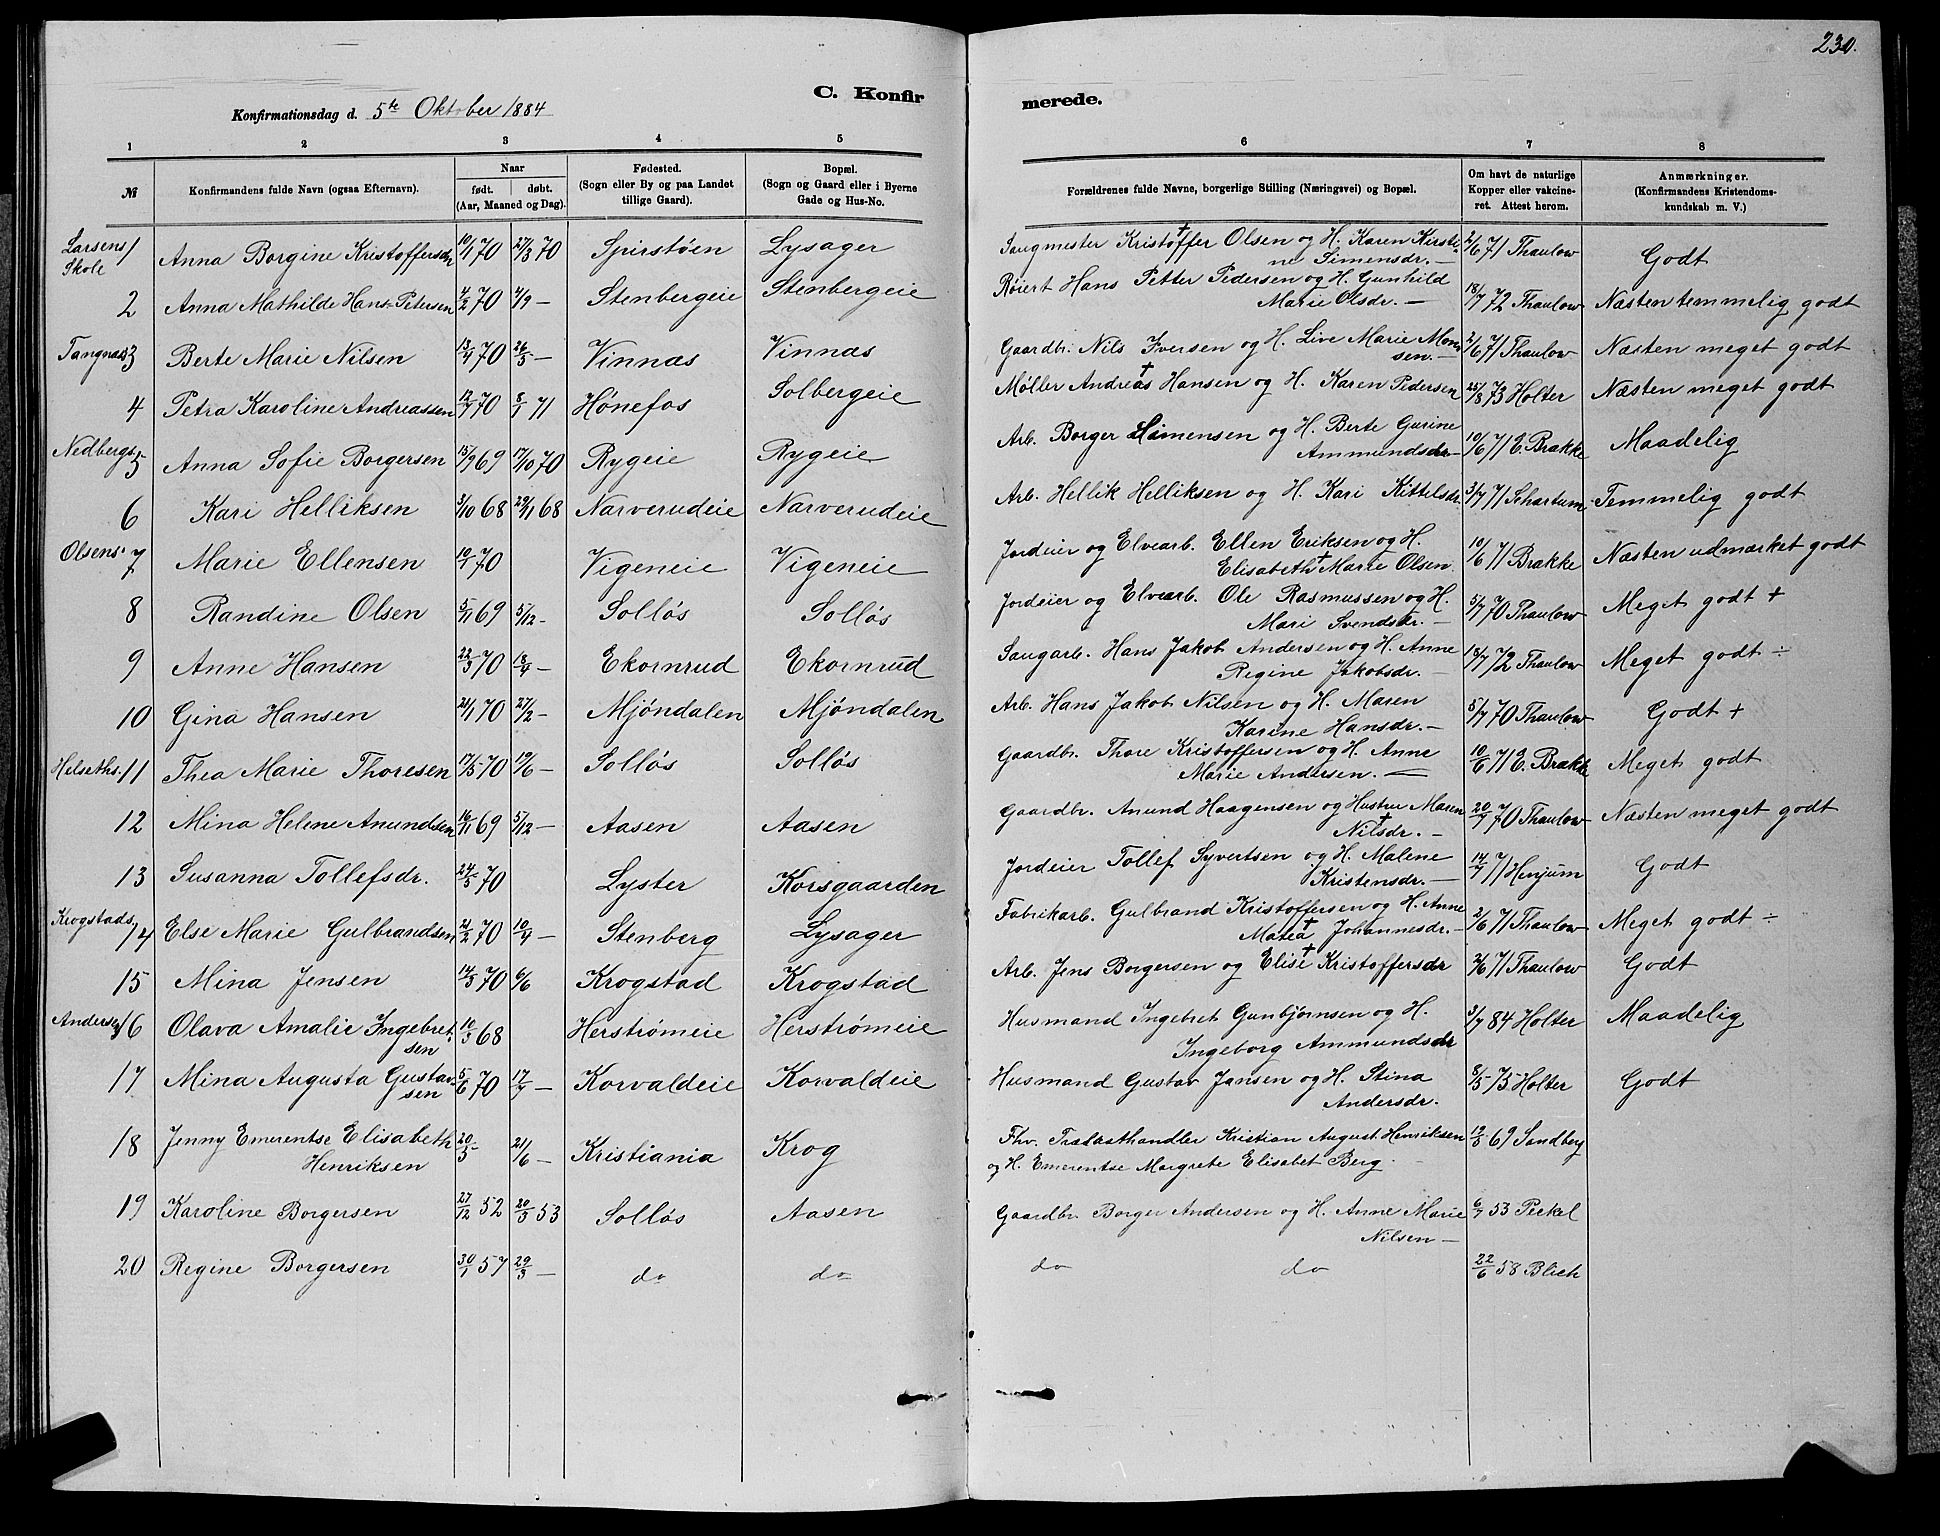 230.
C. Konfirmerede.
Konfirmationsdag d. 5te Oktober 1884
1 2 3 4 5 6 7 8
№
Konfirmandens fulde Navn (ogsaa Efternavn).
Naar
født. døbt.
(Aar, Maaned og Dag).
Fødested.
(Sogn eller By og paa Landet
tillige Gaard).
Bopæl.
(Sogn og Gaard eller i Byerne
Gade og Hus-No.
Forældrenes fulde Navne, borgerlige Stilling (Næringsvei) og Bopæl.
Om havt de naturlige
Kopper eller vakcine-
ret. Attest herom.
Anmærkninger.
(Konfirmandens Kristendoms-
kundskab m. V.)
Larsens Skole 1 Anna Borgine Kristoffersdr 10/1 70 27/3 70 Spirstøen Lysager Saugmester Kristoffer † Olsen og H. Karen Kirsti
ne Simensdr. — 2/6 71 Thaulow Godt
2 Anna Mathilde Hans-Petersen 4/2 70 4/9 — Stenbergeie Stenbergeie Røiert Hans Petter Pedersen og H. Gunhild
Marie Olsdr. — 18/7 72 Thaulow Næsten temmelig godt
Tangnæs 3 Berte Marie Nilsen 13/4 70 26/5 — Vinnæs Vinnæs Gaardbr. Nils Iversen og H. Live Marie Mon
sen. — 2/6 71 Thaulow Næsten meget godt
4 Petra Karoline Andreassen 12/7 70 8/1 71 Hønefos Solbergeie Møller Andreas † Hansen og H. Karen Pedersen 25/8 73 Holter Næsten meget godt
Nedbergs 5 Anna Sofie Borgersen 15/9 69 17/10 70 Rygeie Rygeie Arb. Borger Simensen og H. Berte Gurine
Ammundsdr — 10/6 71 E. Brakke Maadelig
6 Kari Helliksen 3/10 68 29/11 68 Narverudeie Narverudeie Arb. Hellik Helliksen og H. Kari Kittelsdr. 3/7 71 Schartum Temmelig godt
Olsens 7 Marie Ellensen 19/1 70 Vigeneie Vigeneie Jordeier og Elvearb. Ellen Eriksen og H.
Elisabeth † Marie Olsen 10/6 71 Brakke Næsten udmærket godt
8 Randine Olsen 5/11 69 5/12 — Solløs Solløs Jordeier og Elvearb. Ole Rasmussen og H.
Mari Svendsdr. — 5/7 70 Thaulow Meget godt +
9 Anne Hansen 22/3 70 18/4 — Ekornrud Ekornrud Saugarb. Hans Jakob Andersen og H. Anne
Regine Jakobsdr. — 18/7 72 Thaulow Meget godt ÷
10 Gina Hansen 21/1 70 27/2 — Mjøndalen Mjøndalen Arb. Hans Jakob Nilsen og H. Maren
Karine Hansdr. — 5/7 70 Thaulow Godt +
Helseths. 11 Thea Marie Thoresen 17/5 70 19/6 — Solløs Solløs Gaardbr. Thore Kristoffersen og H. Anne
Marie Andersen. — 10/6 71 E. Brakke Meget godt
12 Mina Helene Anundsen 16/11 69 5/12 — Aasen Aasen Gaardbr. Anund Haagensen og Hustru Maren †
Nilsdr. — 20/7 70 Thaulow Næsten meget godt
13 Susanna Tollefsdr. 24/5 70 Lyster Korsgaarden Jordeier Tollef Syvertsen og H. Malene
Kristensdr. — 14/7 71 Henjum Godt
Krogstads 14 Else Marie Gulbrandsen 2/2 70 10/4 — Stenberg Lysager Fabrikarb. Gulbrand Kristoffersen og H. Anne
Matea † Johannesdr. — 2/6 71 Thaulow Meget godt ÷
15 Mina Jensen 14/3 70 6/6 Krogstad Krogstad Arb. Jens Borgersen og Elise † Kristoffersdr 2/6 71 Thaulow Godt
Andersen 16 Olava Amalie Ingebret-
sen 10/3 68 Herstrømeie Herstrømeie Husmand Ingebret Gunbjørnsen og H.
Ingeborg Ammundsdr 3/7 84 Holter Maadelig
17 Mina Augusta Gustav-
sen 5/6 70 17/7 — Korvaldeie Korvaldeie Husmand Gustav Jansen og H. Stina
Andersdr. 8/5 75 Holter Godt
18 Jenny Emerentse Elisabeth
Henriksen 20/5 21/6 — Kristiania Krog Fhv. Trælasthandler Kristian August Henriksen
og H. Emerentse Margrete Elisabet Berg. 19/8 69 Sandberg
19 Karoline Borgersen 27/12 52 20/3 53 Solløs Aasen Gaardbr. Borger Andersen og H. Anne Marie
Nilsen — 6/7 53 Peckel
20 Regine Borgersen 30/1 57 29/3 — do do do do 22/6 58 Blich